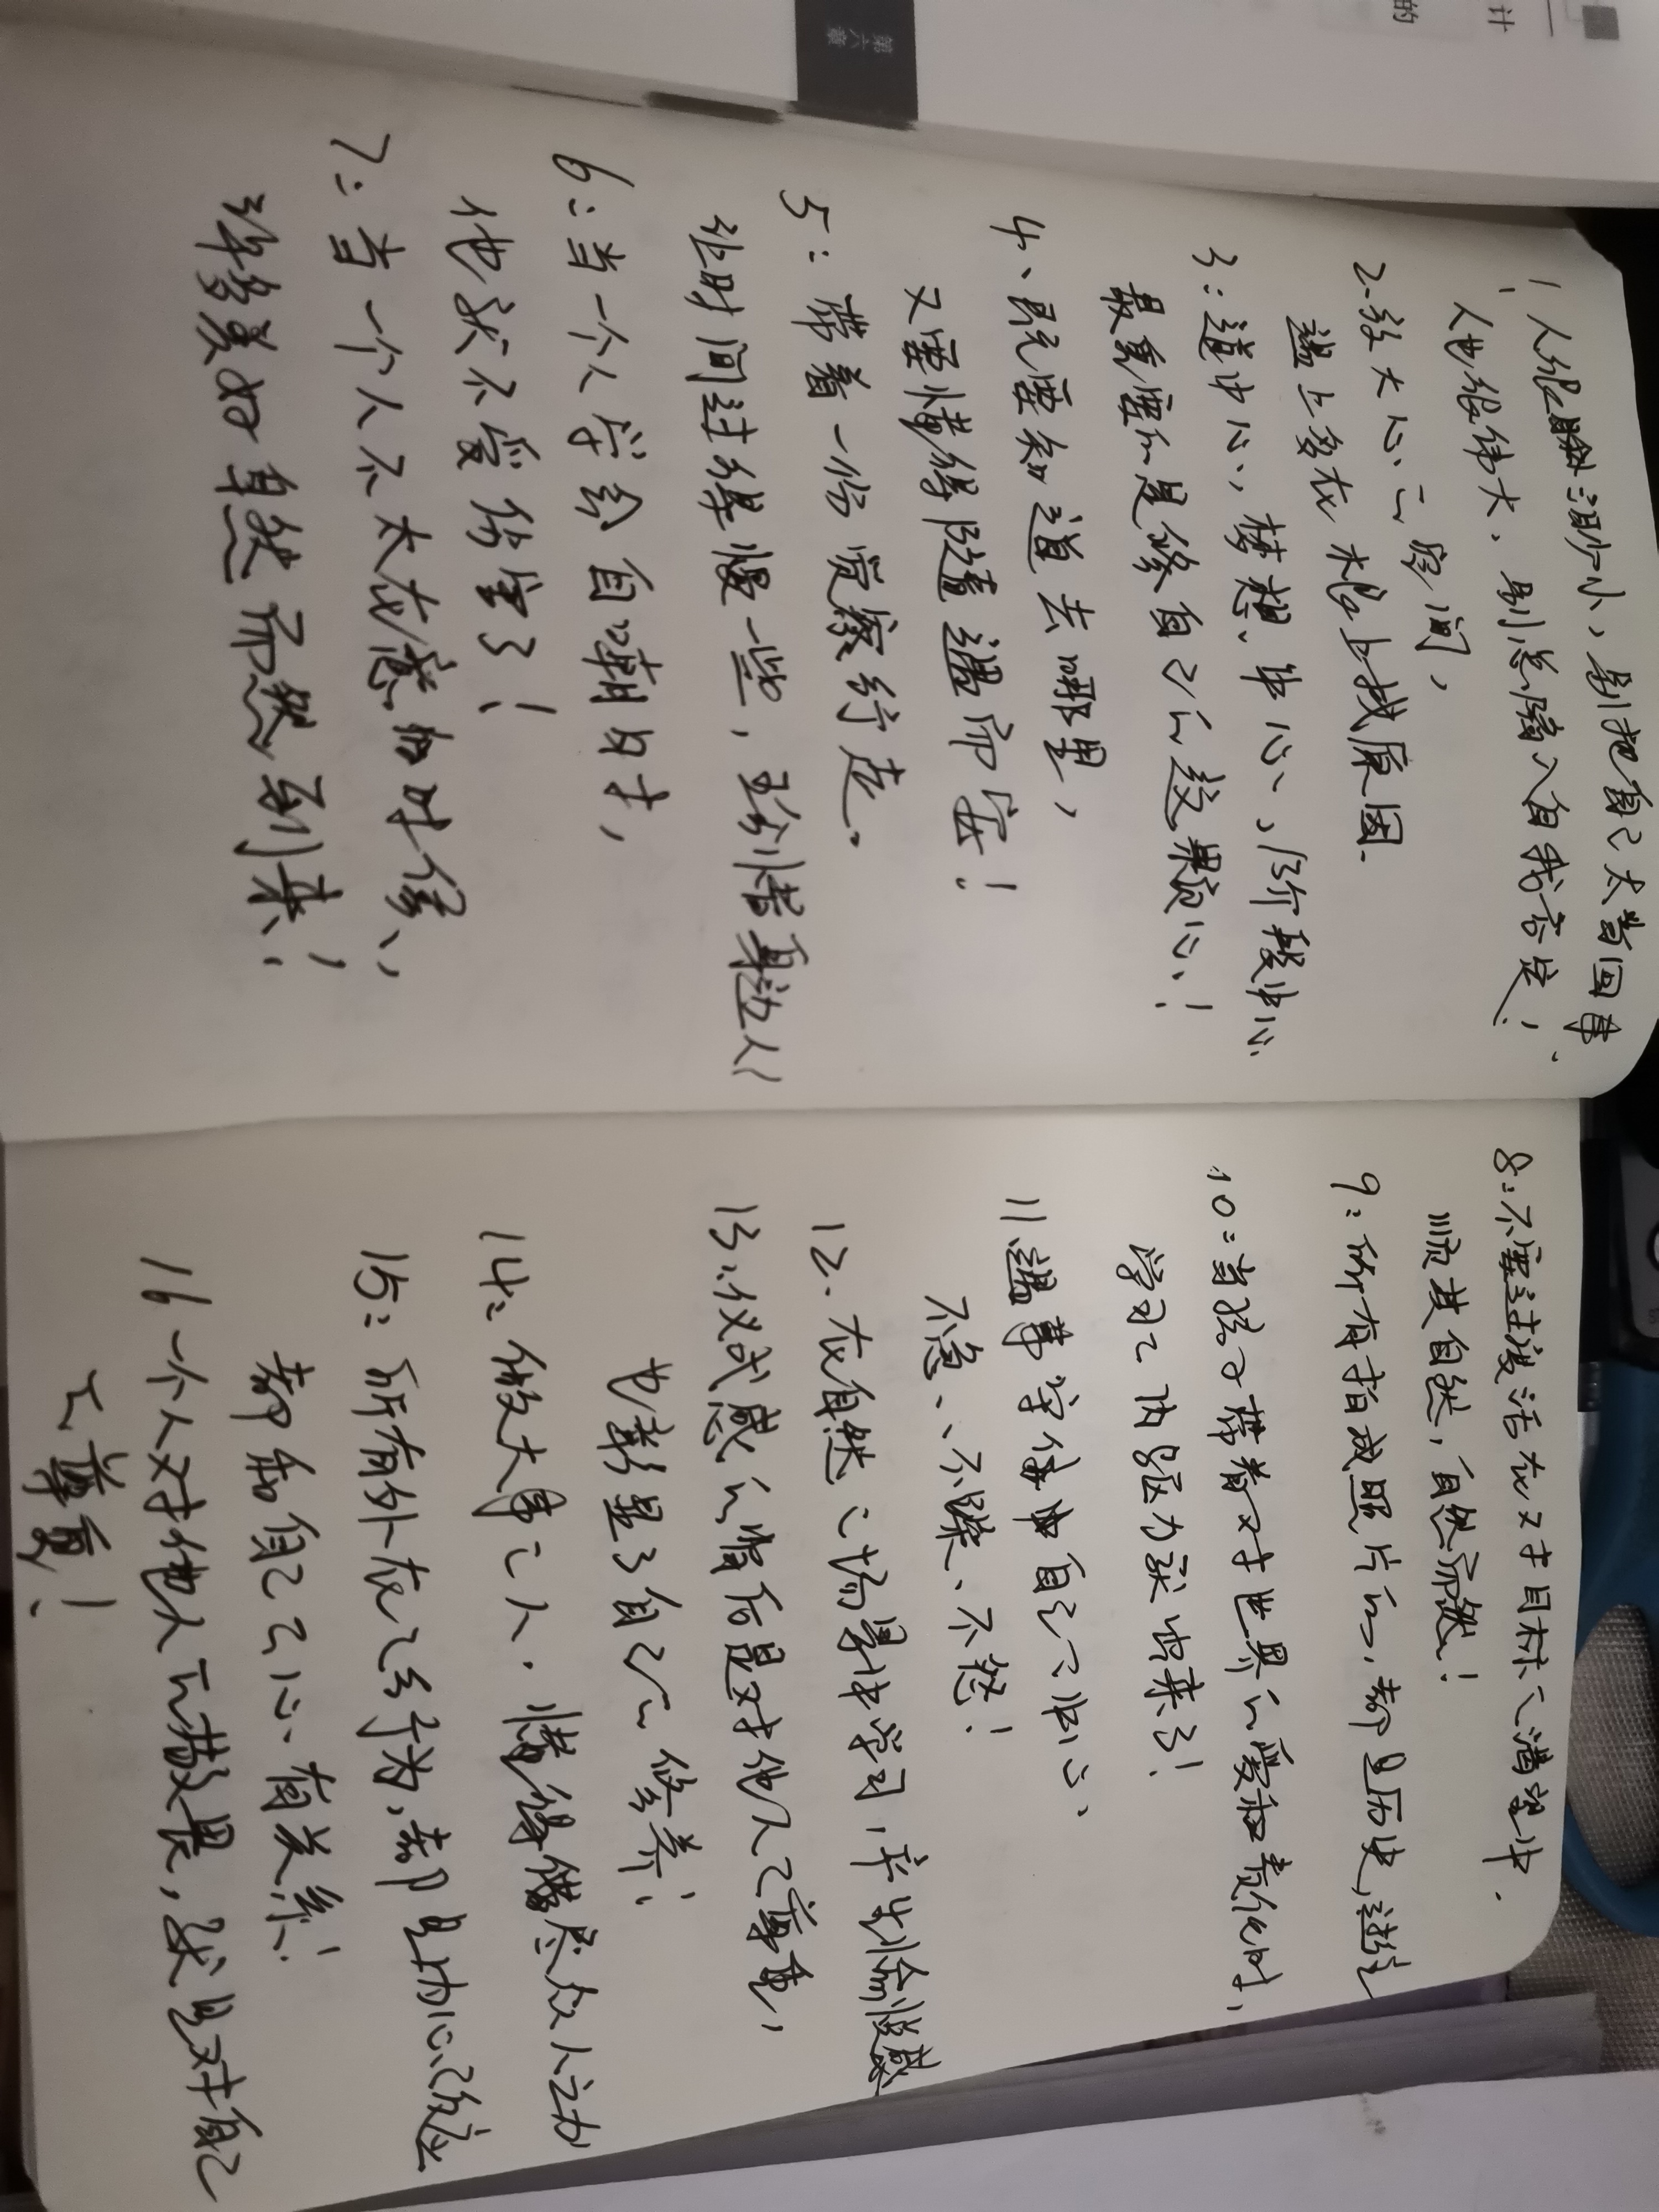 计
的
第六章
1、人很渺小、别把自己太当回事、
人也很伟大、别总陷入自我否定！
2、放大心之空间，
遇上多在 上找原因.
3：道中心，梦想中心、阶段中心
最重要的是修自己的这颗心！
4、既要知道去哪里，
又要懂得随遇而安！
5：带着一份觉察行走。
让时间过得慢一些，珍惜身边人
6：当一个人学会自嘲时，
他就不受伤害了！
7：当一个人不太在意的时候，
许多美好自然而然到来！
8：不要过度活在对目标之渴望中.
顺其自然，自然而然！
9：所有拍成照片的，都是历史，
10：当孩子带着对世界的爱和责任时，
学习之内驱力就出来了！
11、遇事守住自己之中心、
不急、不躁、不怒！
12、在自然之场景中学习，产生愉悦感
13、仪式感的背后是对他人之尊重，
也彰显了自己的修养！
14：做大事之人，懂得借尽众人之力
15：所有外在之行为，都是内心之
都和自己之心有关系！
16 一个人对他人的 ，就是对自己
之尊重！